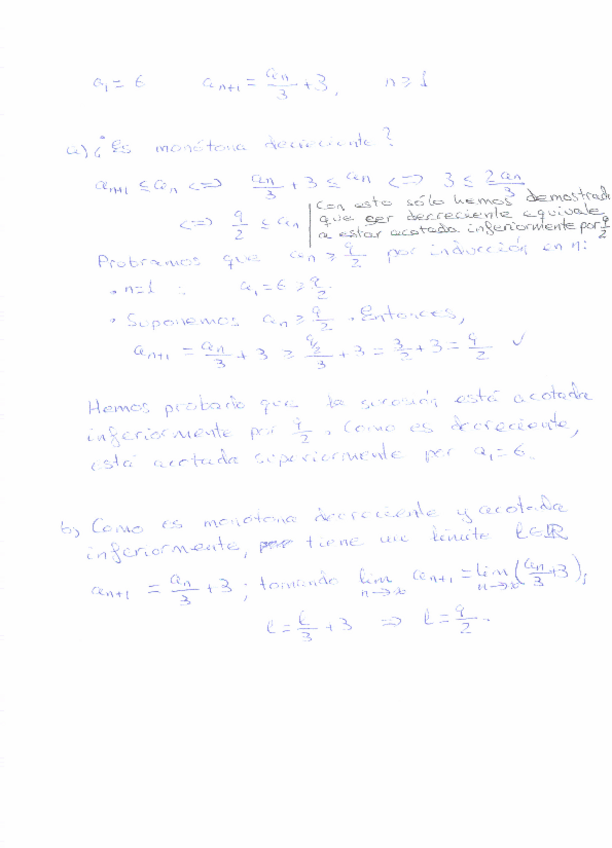 a₁ = 6   aₙ₊₁ = aₙ/3 + 3,   n ≥ 1
a) ¿Es monótona decreciente?
aₙ₊₁ ≤ aₙ <=> aₙ/3 + 3 ≤ aₙ <=> 3 ≤ 2aₙ/3
<=> 9/2 ≤ aₙ
con esto sólo hemos demostrado
que ser decreciente equivale
a estar acotada inferiormente por 9/2
Probamos que aₙ ≥ 9/2 por inducción en n:
• n=1 : a₁ = 6 ≥ 9/2.
• Suponemos aₙ ≥ 9/2. Entonces,
aₙ₊₁ = aₙ/3 + 3 ≥ (9/2)/3 + 3 = 3/2 + 3 = 9/2 ✓
Hemos probado que la sucesión está acotada
inferiormente por 9/2. Como es decreciente,
está acotada superiormente por a₁ = 6.
b) Como es monótona decreciente y acotada
inferiormente, tiene un límite ℓ∈ℝ
aₙ₊₁ = aₙ/3 + 3; tomando lim n→∞ aₙ₊₁ = lim n→∞ (aₙ/3 + 3),
ℓ = ℓ/3 + 3 => ℓ = 9/2.